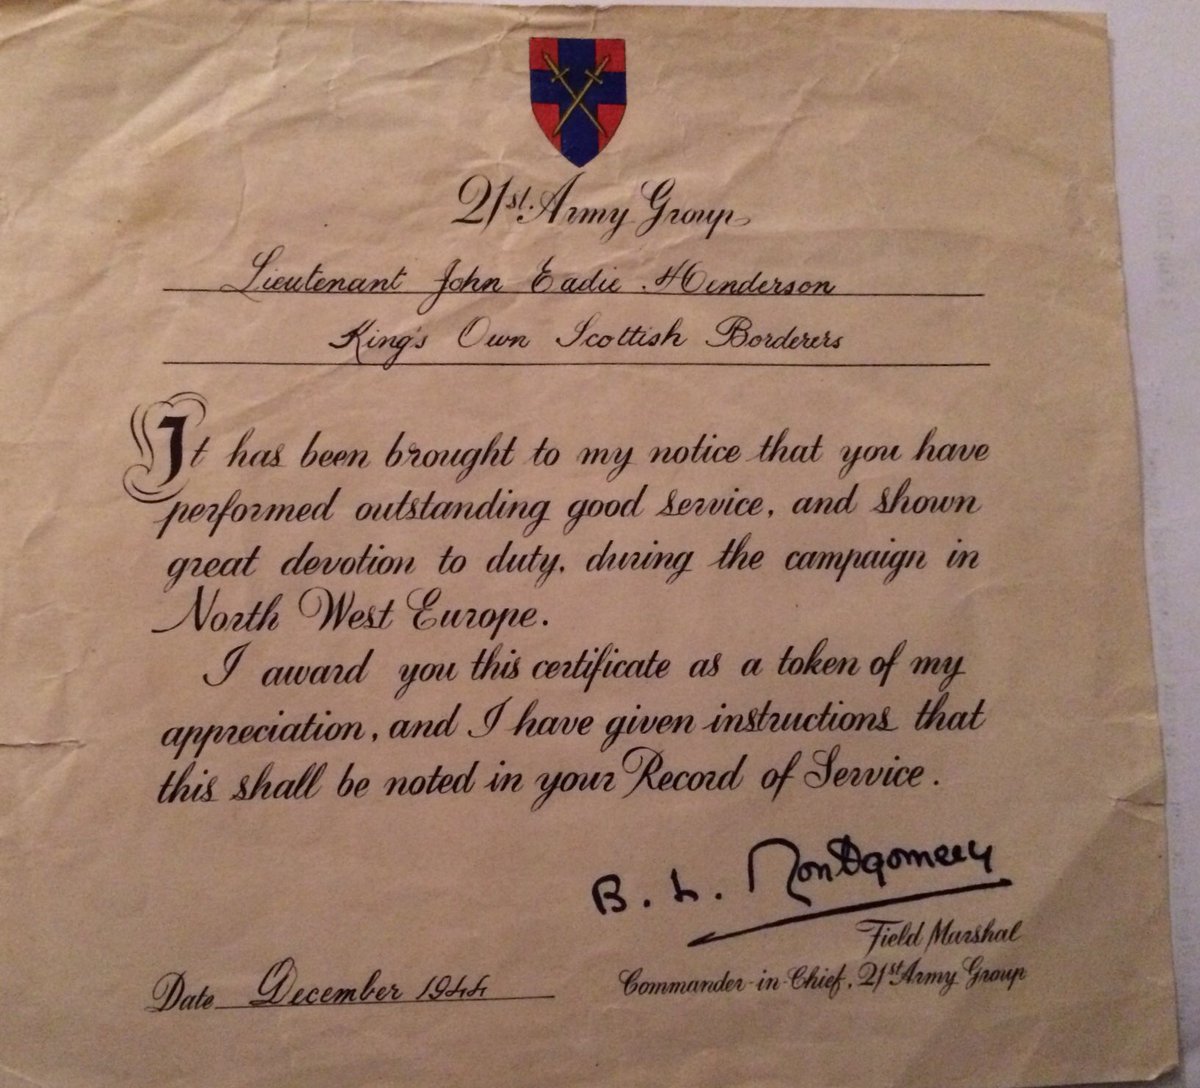 21st. Army Group
Lieutenant John Eadie Henderson
King's Own Scottish Borderers
It has been brought to my notice that you have
performed outstanding good service, and shown
great devotion to duty, during the campaign in
North West Europe.
I award you this certificate as a token of my
appreciation, and I have given instructions that
this shall be noted in your Record of Service.
B. L. Montgomery
Field Marshal
Commander-in-Chief, 21st Army Group
Date December 1944